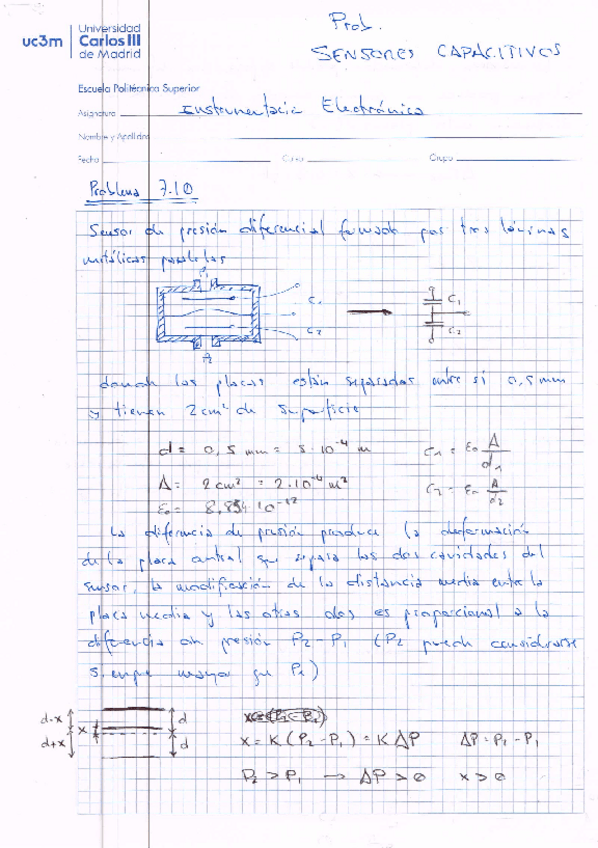 Prob.
SENSORES CAPACITIVOS
uc3m
Universidad
Carlos III
de Madrid
Escuela Politécnica Superior
Asignatura Instrumentación Electrónica
Nombre y Apellidos
Fecha Curso Grupo
Problema 7.10
Sensor de presión diferencial formado por tres láminas
metálicas paralelas
P1
C1
C2
P2
C1
C2
donde las placas están separadas entre si 0,5 mm
y tienen 2 cm² de superficie
d = 0,5 mm = 5·10⁻⁴ m
C1 = ε0 A/d1
A = 2 cm² = 2·10⁻⁴ m²
C2 = ε0 A/d2
ε0 = 8,854·10⁻¹²
La diferencia de presión produce la deformación
de la placa central que separa las dos cavidades del
sensor, la modificación de la distancia media entre la
placa media y las otras dos es proporcional a la
diferencia de presión P2 - P1 (P2 puede considerarse
siempre mayor que P1)
d-x
x
d+x
d
d
x = K (P2 - P1) = K ΔP
ΔP = P2 - P1
P2 > P1 → ΔP > 0
x > 0